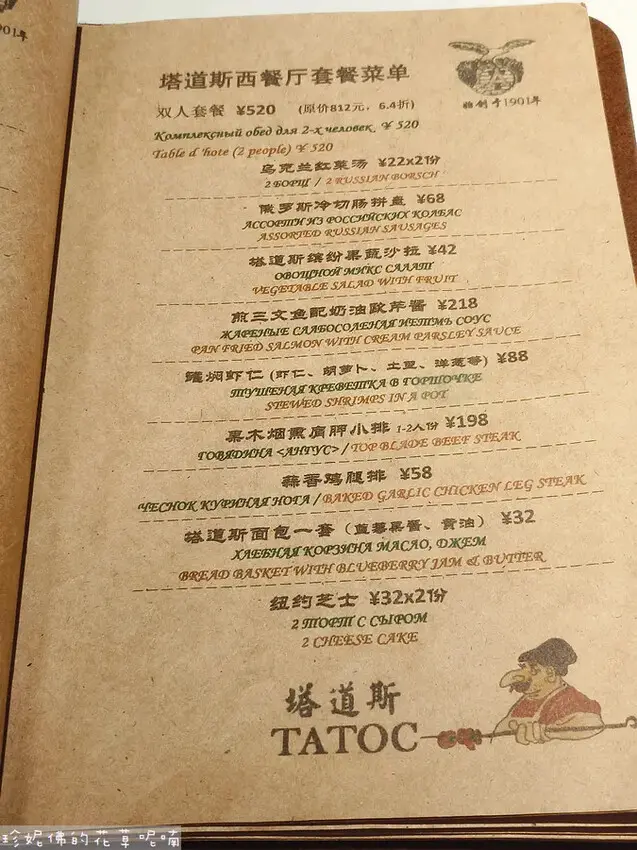 1901年
塔道斯西餐厅套餐菜单
始创于1901年
双人套餐 ¥520 (原价812元，6.4折)
Комплексный обед для 2-х человек ¥ 520
Table d'hote (2 people) ¥ 520
乌克兰红菜汤 ¥22x2份
2 БОРЩ / 2 RUSSIAN BORSCH
俄罗斯冷切肠拼盘 ¥68
АССОРТИ ИЗ РОССИЙСКИХ КОЛБАС
ASSORTED RUSSIAN SAUSAGES
塔道斯缤纷果蔬沙拉 ¥42
ОВОЩНОЙ МИКС САЛАТ
VEGETABLE SALAD WITH FRUIT
煎三文鱼配奶油欧芹酱 ¥218
ЖАРЕНЫЕ СЛАБОСОЛЕНАЯ ПЕТМЬ СОУС
PAN FRIED SALMON WITH CREAM PARSLEY SAUCE
罐焖虾仁 (虾仁、胡萝卜、土豆、洋葱等) ¥88
ТУШЕНАЯ КРЕВЕТКА В ГОРШОЧКЕ
STEWED SHRIMPS IN A POT
果木烟熏肩胛小排 1-2人份 ¥198
ГОВЯДИНА <АНГУС> / TOP BLADE BEEF STEAK
蒜香鸡腿排 ¥58
ЧЕСНОК КУРИНАЯ НОГА / BAKED GARLIC CHICKEN LEG STEAK
塔道斯面包一套（蓝莓果酱、黄油） ¥32
ХЛЕБНАЯ КОРЗИНА МАСЛО, ДЖЕМ
BREAD BASKET WITH BLUEBERRY JAM & BUTTER
纽约芝士 ¥32x2份
2 ТОРТ С СЫРОМ
2 CHEESE CAKE
塔道斯
TATOC
珍妮佛的花草呢喃